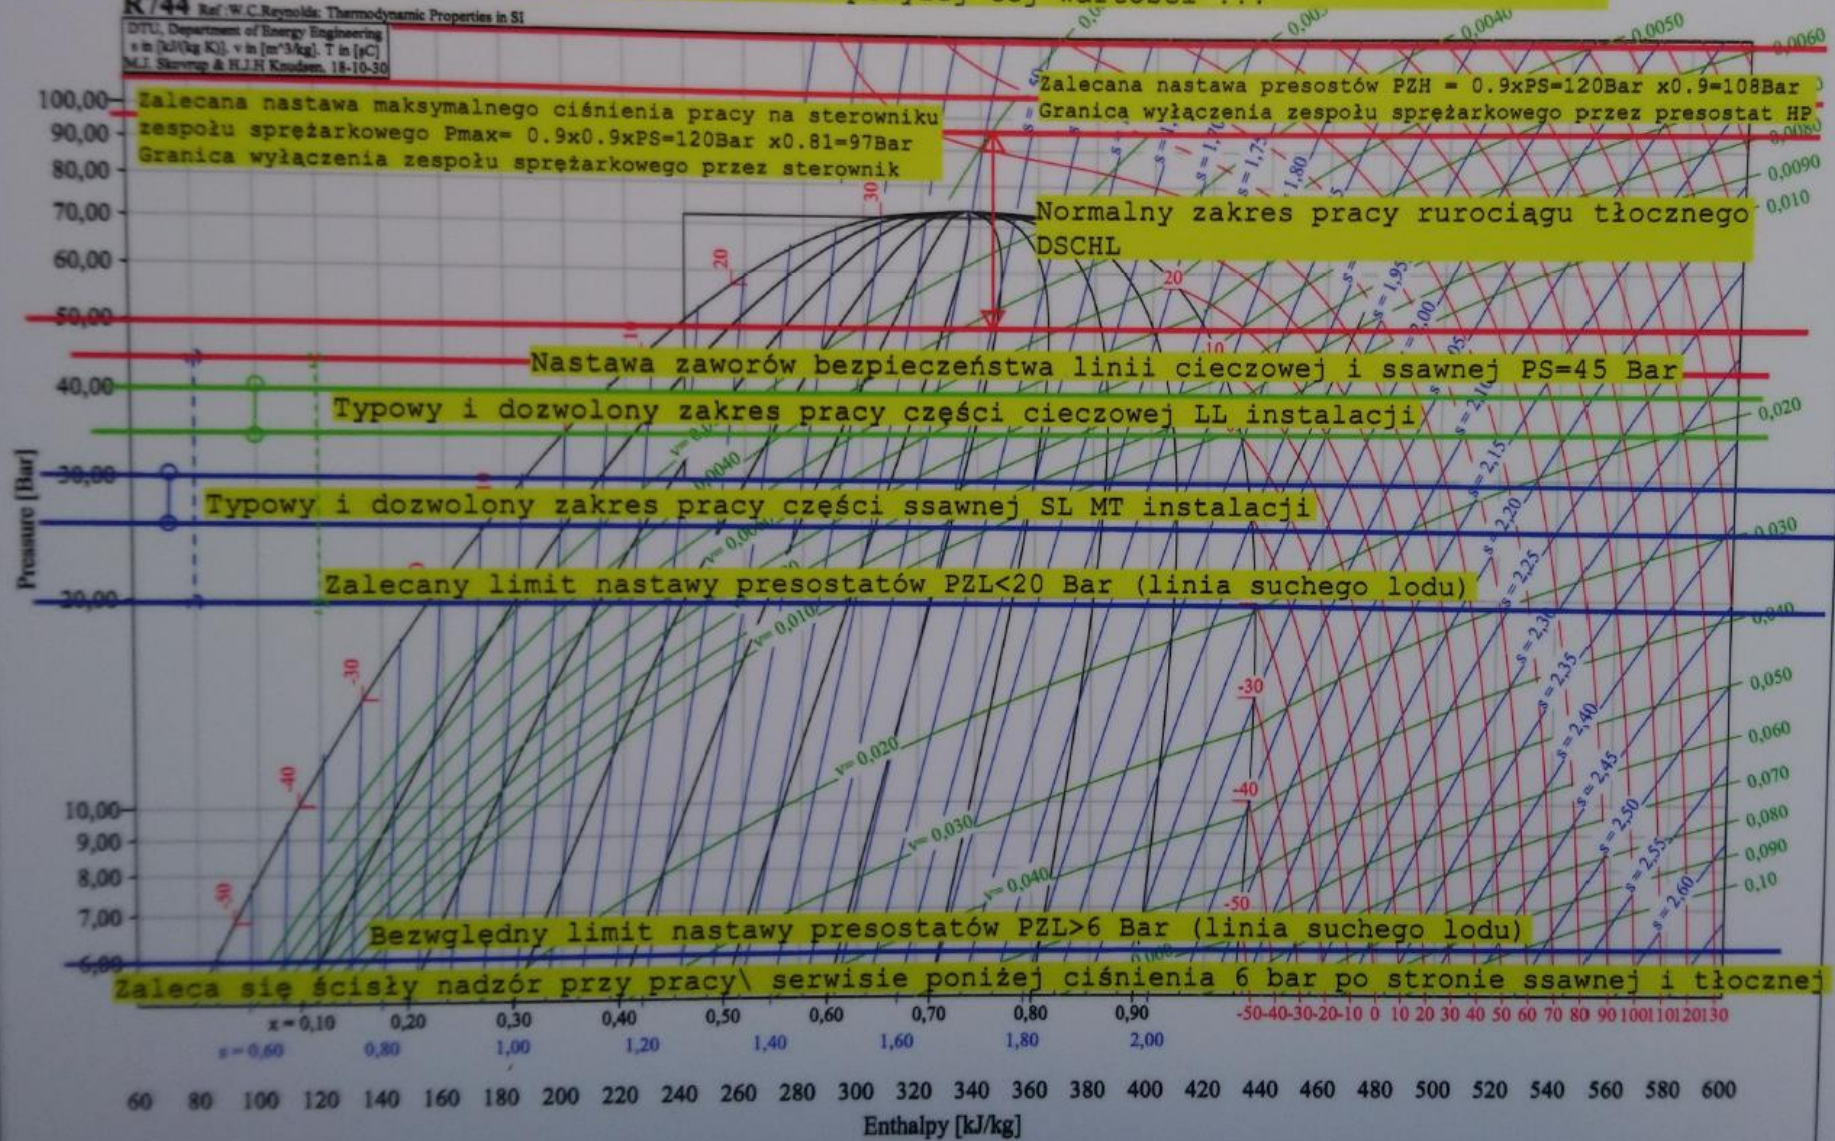 R744 Ref :W.C.Reynolds: Thermodynamic Properties in SI
DTU, Department of Energy Engineering
s in [kJ/(kg K)]. v in [m^3/kg]. T in [ºC]
M.J. Skovrup & H.J.H Knudsen. 18-10-30
Zalecana nastawa presostów PZH = 0.9xPS=120Bar x0.9=108Bar
Granica wyłączenia zespołu sprężarkowego przez presostat HP
Zalecana nastawa maksymalnego ciśnienia pracy na sterowniku
zespołu sprężarkowego Pmax= 0.9x0.9xPS=120Bar x0.81=97Bar
Granica wyłączenia zespołu sprężarkowego przez sterownik
Normalny zakres pracy rurociągu tłocznego
DSCHL
Nastawa zaworów bezpieczeństwa linii cieczowej i ssawnej PS=45 Bar
Typowy i dozwolony zakres pracy części cieczowej LL instalacji
Typowy i dozwolony zakres pracy części ssawnej SL MT instalacji
Zalecany limit nastawy presostatów PZL<20 Bar (linia suchego lodu)
Bezwględny limit nastawy presostatów PZL>6 Bar (linia suchego lodu)
Zaleca się ścisły nadzór przy pracy\ serwisie poniżej ciśnienia 6 bar po stronie ssawnej i tłocznej
Pressure [Bar]
100,00
90,00
80,00
70,00
60,00
50,00
40,00
30,00
20,00
10,00
9,00
8,00
7,00
6,00
0,0040
0,0050
0,0060
0,0080
0,0090
0,010
0,020
0,030
0,040
0,050
0,060
0,070
0,080
0,090
0,10
30
20
-30
-40
-50
20
-30
-40
-50
s = 1,95
s = 2,15
s = 2,20
s = 2,25
s = 2,30
s = 2,35
s = 2,40
s = 2,45
s = 2,50
s = 2,55
s = 2,60
v= 0,010
v= 0,020
v= 0,030
v= 0,040
x = 0,10 0,20 0,30 0,40 0,50 0,60 0,70 0,80 0,90
-50 -40 -30 -20 -10 0 10 20 30 40 50 60 70 80 90 100 110 120 130
s = 0,60 0,80 1,00 1,20 1,40 1,60 1,80 2,00
60 80 100 120 140 160 180 200 220 240 260 280 300 320 340 360 380 400 420 440 460 480 500 520 540 560 580 600
Enthalpy [kJ/kg]